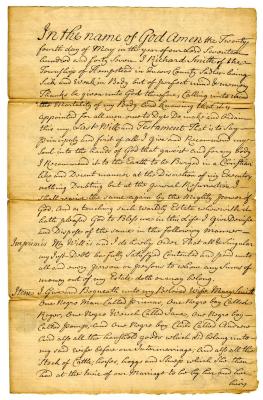 In the name of God Amen the Twenty
fourth day of May in the year of our Lord Seventeen
hundred and forty Seven I Richard Smith of the
Township of Hampstead in Queens County Sadler being
Sick and weak in Body but of perfect mind & memory
Thanks be given unto God therefore Calling unto mind
the Mortality of my Body and Knowing that it is
appointed for all men once to Dye Do make and Ordain
this my Last Will and Testament That is to say
Principally and first of all I Give and Recommend my
Soul into the hands of God that gave it and for my body
I Recommend it to the Earth to be Buryed in a Christian
like and decent manner at the discretion of my Executors
nothing Doubting but at the General Resurrection I
Shall receive the same again by the Mighty power of
God, and as touching such worldly Estate wherewith it
hath pleased God to Bless me in this Life I give Devise
and Dispose of the same in the following manner
Imprimis My Will is and I do hereby Order That all
my Just Debts be fully Satisfied Contented and paid unto
all and every person or persons to whom any sums of
money out of my Estate doth or may belong
Item I Give and Bequeath unto my Beloved Wife Mary Smith
One Negro Man Called Primus, One Negro boy Called
Roger, One Negro Wench Called Jane, One Negro boy
Called Pomp, and One Negro boy Child Called Andrew
And also all the household goods which did belong unto
my said wife before our Intermarriage and also all the
Stock of Cattle, horses, hoggs and Sheep which She
had at the time of our Marriage to be by her and her
heirs